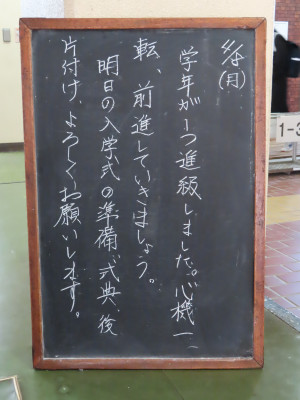 4/8(月)
学年が1つ進級しました。心機一
転、前進していきましょう。
明日の入学式の準備、式典、後
片付け、よろしくお願いします。
1-3